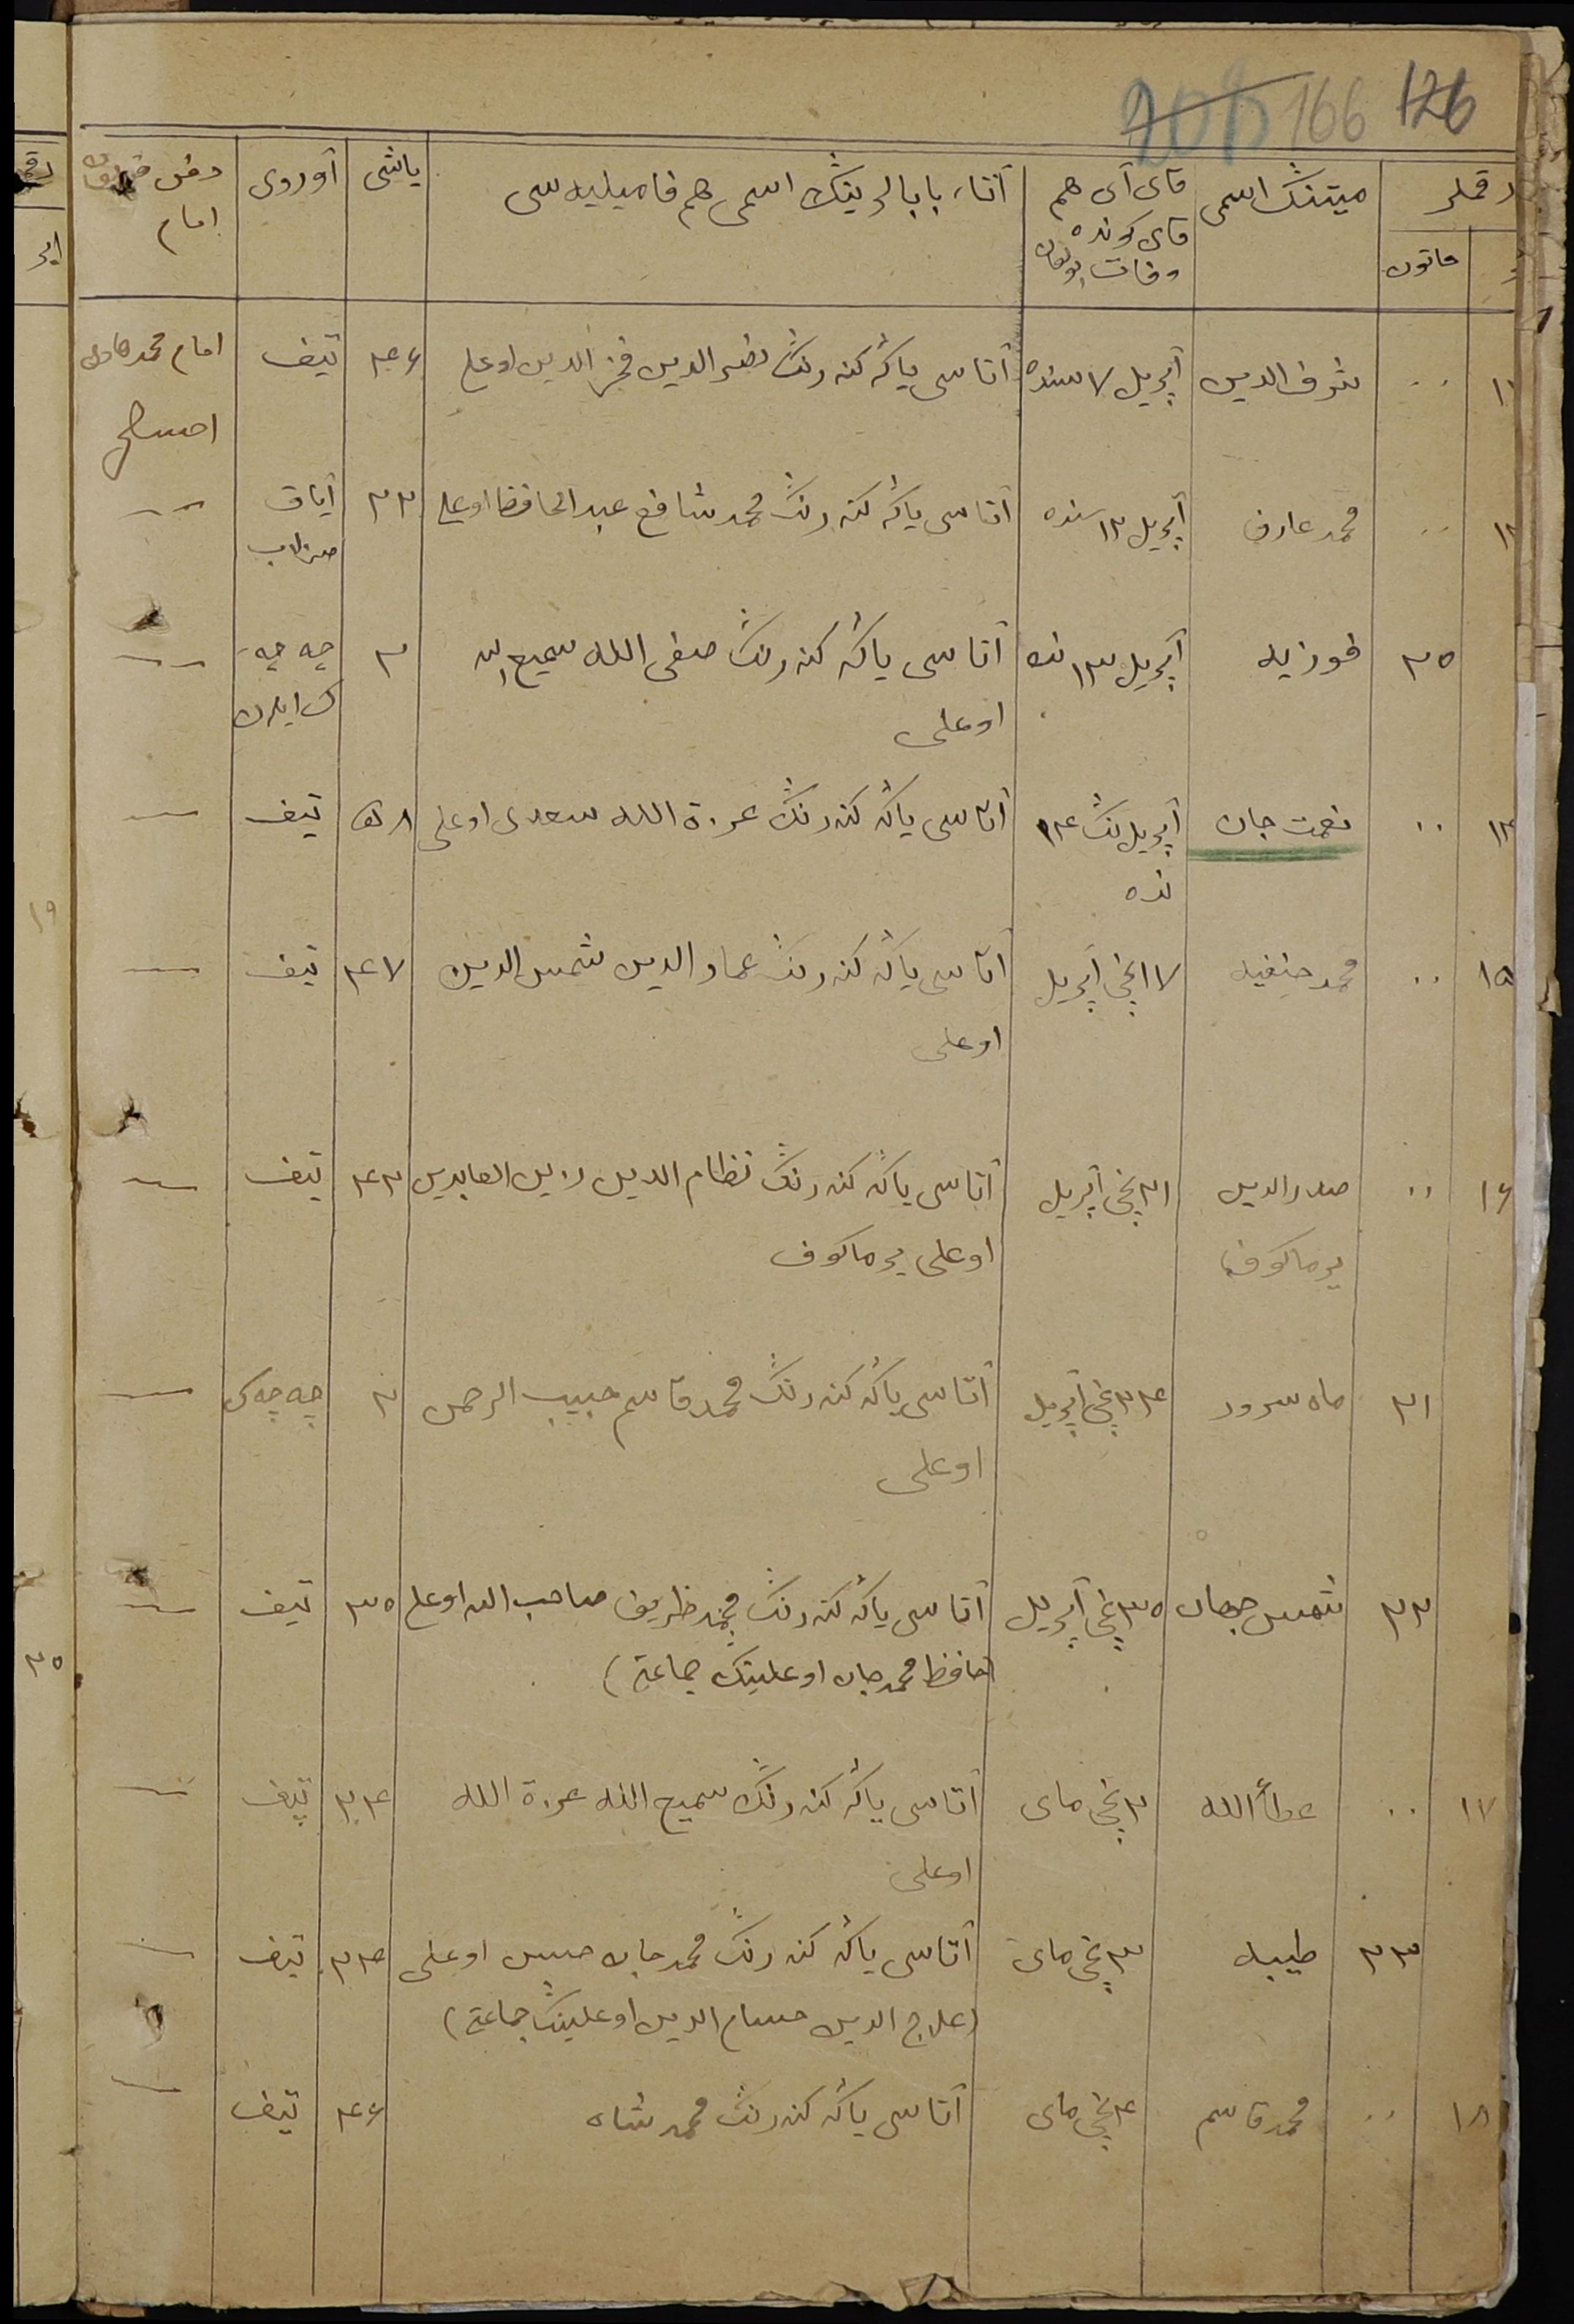 208 166 126
رقملر
خاتون
میتنڭ اسمی
قای آی هم
قای کونده
وفات بولغان
آتا، بابالرینڭ اسمی هم فامیلیه سی
یاشی
آوروی
دفن قیلغان
امام
شرف الدین
آپریل ۷ سنده
آتاسی یاڭه کنه رنڭ نصر الدین فخر الدین اوغلی
۴۶
تیف
امام محمد هادی
محمد عارف
آپریل ۱۲ سنده
آتاسی یاڭه کنه رنڭ محمد شافع عبد الحافظ اوغلی
۲۲
آیاق
۲۰
فوزیه
آپریل ۱۳ نده
آتاسی یاڭه کنه رنڭ صفی الله سمیع الله
اوغلی
۲
چه چه
۱۴
نعمت جان
آپریل نڭ ۱۴
نده
آتاسی یاڭه کنه رنڭ عزة الله سعدی اوغلی
۵۸
تیف
۱۵
محمد حنفیه
۱۷ نچی آپریل
آتاسی یاڭه کنه رنڭ عماد الدین شمس الدین
اوغلی
۴۷
تیف
۱۶
صدر الدین
یرماکوف
۲۱ نچی آپریل
آتاسی یاڭه کنه رنڭ نظام الدین زین العابدین
اوغلی یرماکوف
۴۳
تیف
۲۱
ماه سرور
۲۴ نچی آپریل
آتاسی یاڭه کنه رنڭ محمد قاسم حبیب الرحمن
اوغلی
۲
چه چه ک
۲۲
شمس جهان
۲۵ نچی آپریل
آتاسی یاڭه کنه رنڭ محمد ظریف صاحب الله اوغلی
(حافظ محمد جان اوغلینڭ جماعتی)
۳۰
تیف
۱۷
عطأ الله
۲ نچی مای
آتاسی یاڭه کنه رنڭ سمیع الله عزة الله
اوغلی
۲۴
تیف
۲۳
طیبه
۳ نچی مای
آتاسی یاڭه کنه رنڭ محمد جان حسین اوغلی
(علاج الدین حسام الدین اوغلینڭ جماعتی)
۲۴
تیف
۱۸
محمد قاسم
۴ نچی مای
آتاسی یاڭه کنه رنڭ محمد شاه
۴۶
تیف